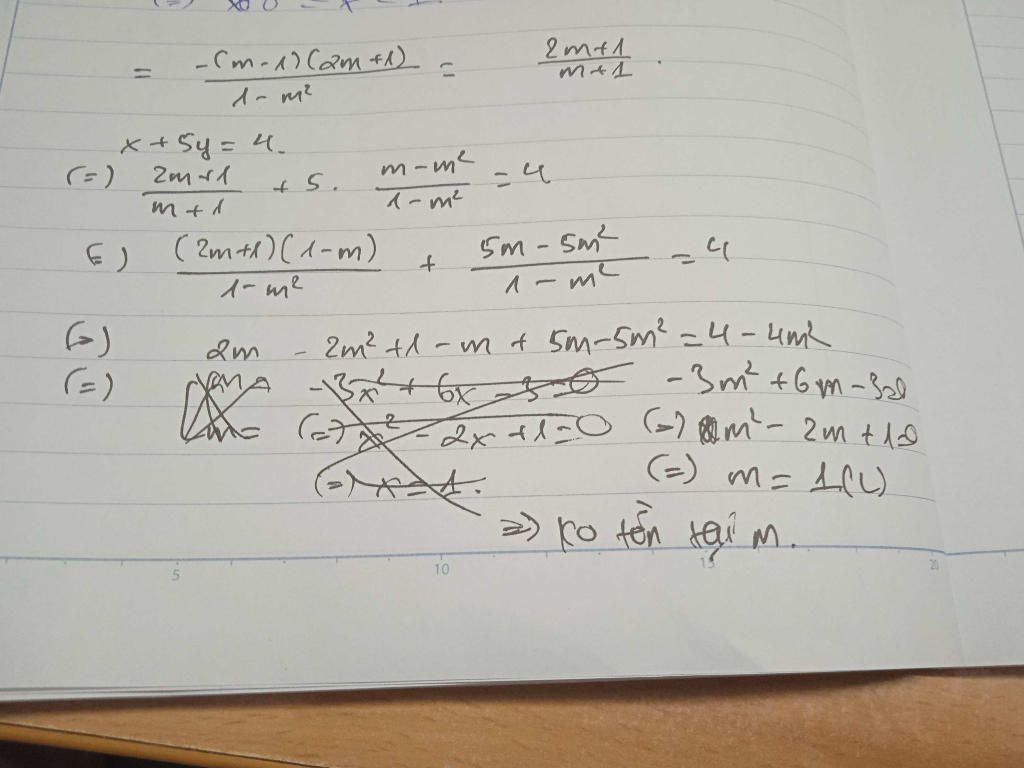 = -(m-1)(2m+1) / 1-m² = 2m+1 / m+1 .
x + 5y = 4.
(=) 2m+1 / m+1 + 5. m-m² / 1-m² = 4
(=) (2m+1)(1-m) / 1-m² + 5m-5m² / 1-m² = 4
(=) 2m - 2m² + 1 - m + 5m - 5m² = 4 - 4m²
(=) -3x² + 6x - 3 = 0 -3m² + 6m - 3=0
m= (=) x² - 2x + 1 = 0 (=) m² - 2m + 1=0
(=) x = 1. (=) m = 1(L)
=> Ko tồn tại m.
5 10 15 20